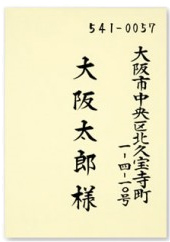 541-0057
大阪市中央区北久宝寺町
一-四-一〇号
大阪太郎様